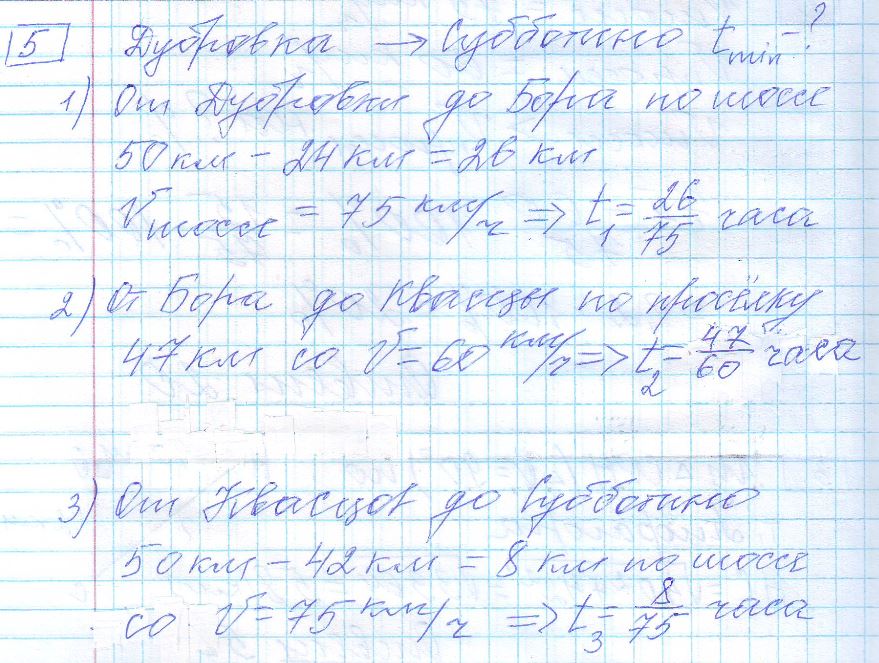 5 Дубровка → Субботино t min - ?
1) От Дубровки до Бора по шоссе
50 км - 24 км = 26 км
V шоссе = 75 км/ч => t₁ = 26/75 часа
2) От Бора до Квасцы по просёлку
47 км со V = 60 км/ч => t₂ = 47/60 часа
3) От Квасцов до Субботино
50 км - 42 км = 8 км по шоссе
со V = 75 км/ч => t₃ = 8/75 часа